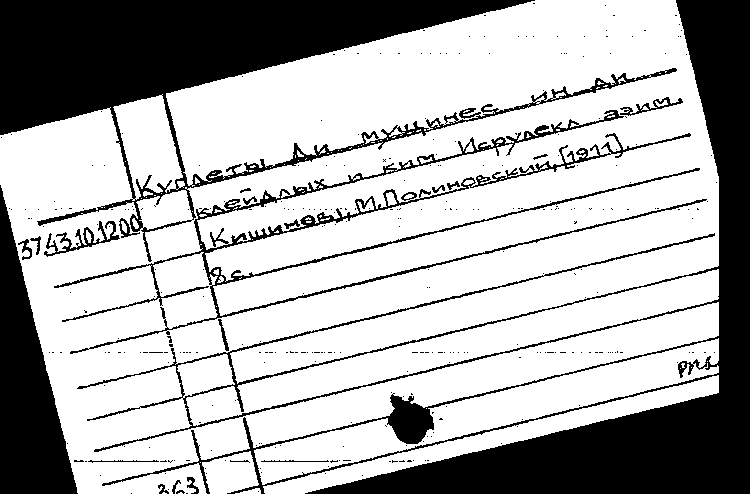 Куплеты Ди мущинес ин ди
клейдлых и ким Исрулекл агим.
37.43.10.1200. Кишиневъ, М. Полиновский, [1911].
8 с.
363